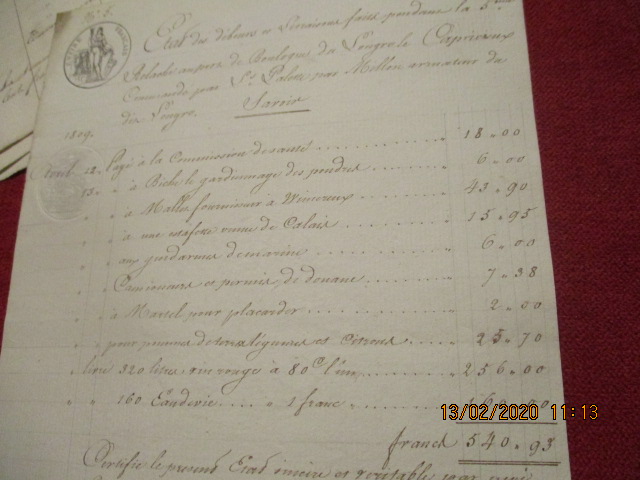 Etat des débours et livraisons faits pendant la 5me
Relache au port de Boulogne du Lougre le Capricieux
Commandé par St. par Mallon armateur du
dit Lougre.
Savoir
1809.
Aout 12. Payé à la Commission de santé 18.00
13. " à le gardiennage des poudres 6.00
" " à Mallet fournisseur à Wimereux 43.90
" " à une estafette venue de Calais 15.95
" " aux gendarmes de marine 6.00
" " Camioneurs et permis de douane 7.38
" " à Martel pour placarder 2.00
" " pour pommes de terre légumes et Citrons 25.70
livré 320 litres vin rouge à 80c l'un 256.00
" " 160 Eau de vie " 1 franc 160.00
francs 540.93
Certifié le présent Etat sincère et véritable par moi
13/02/2020 11:13